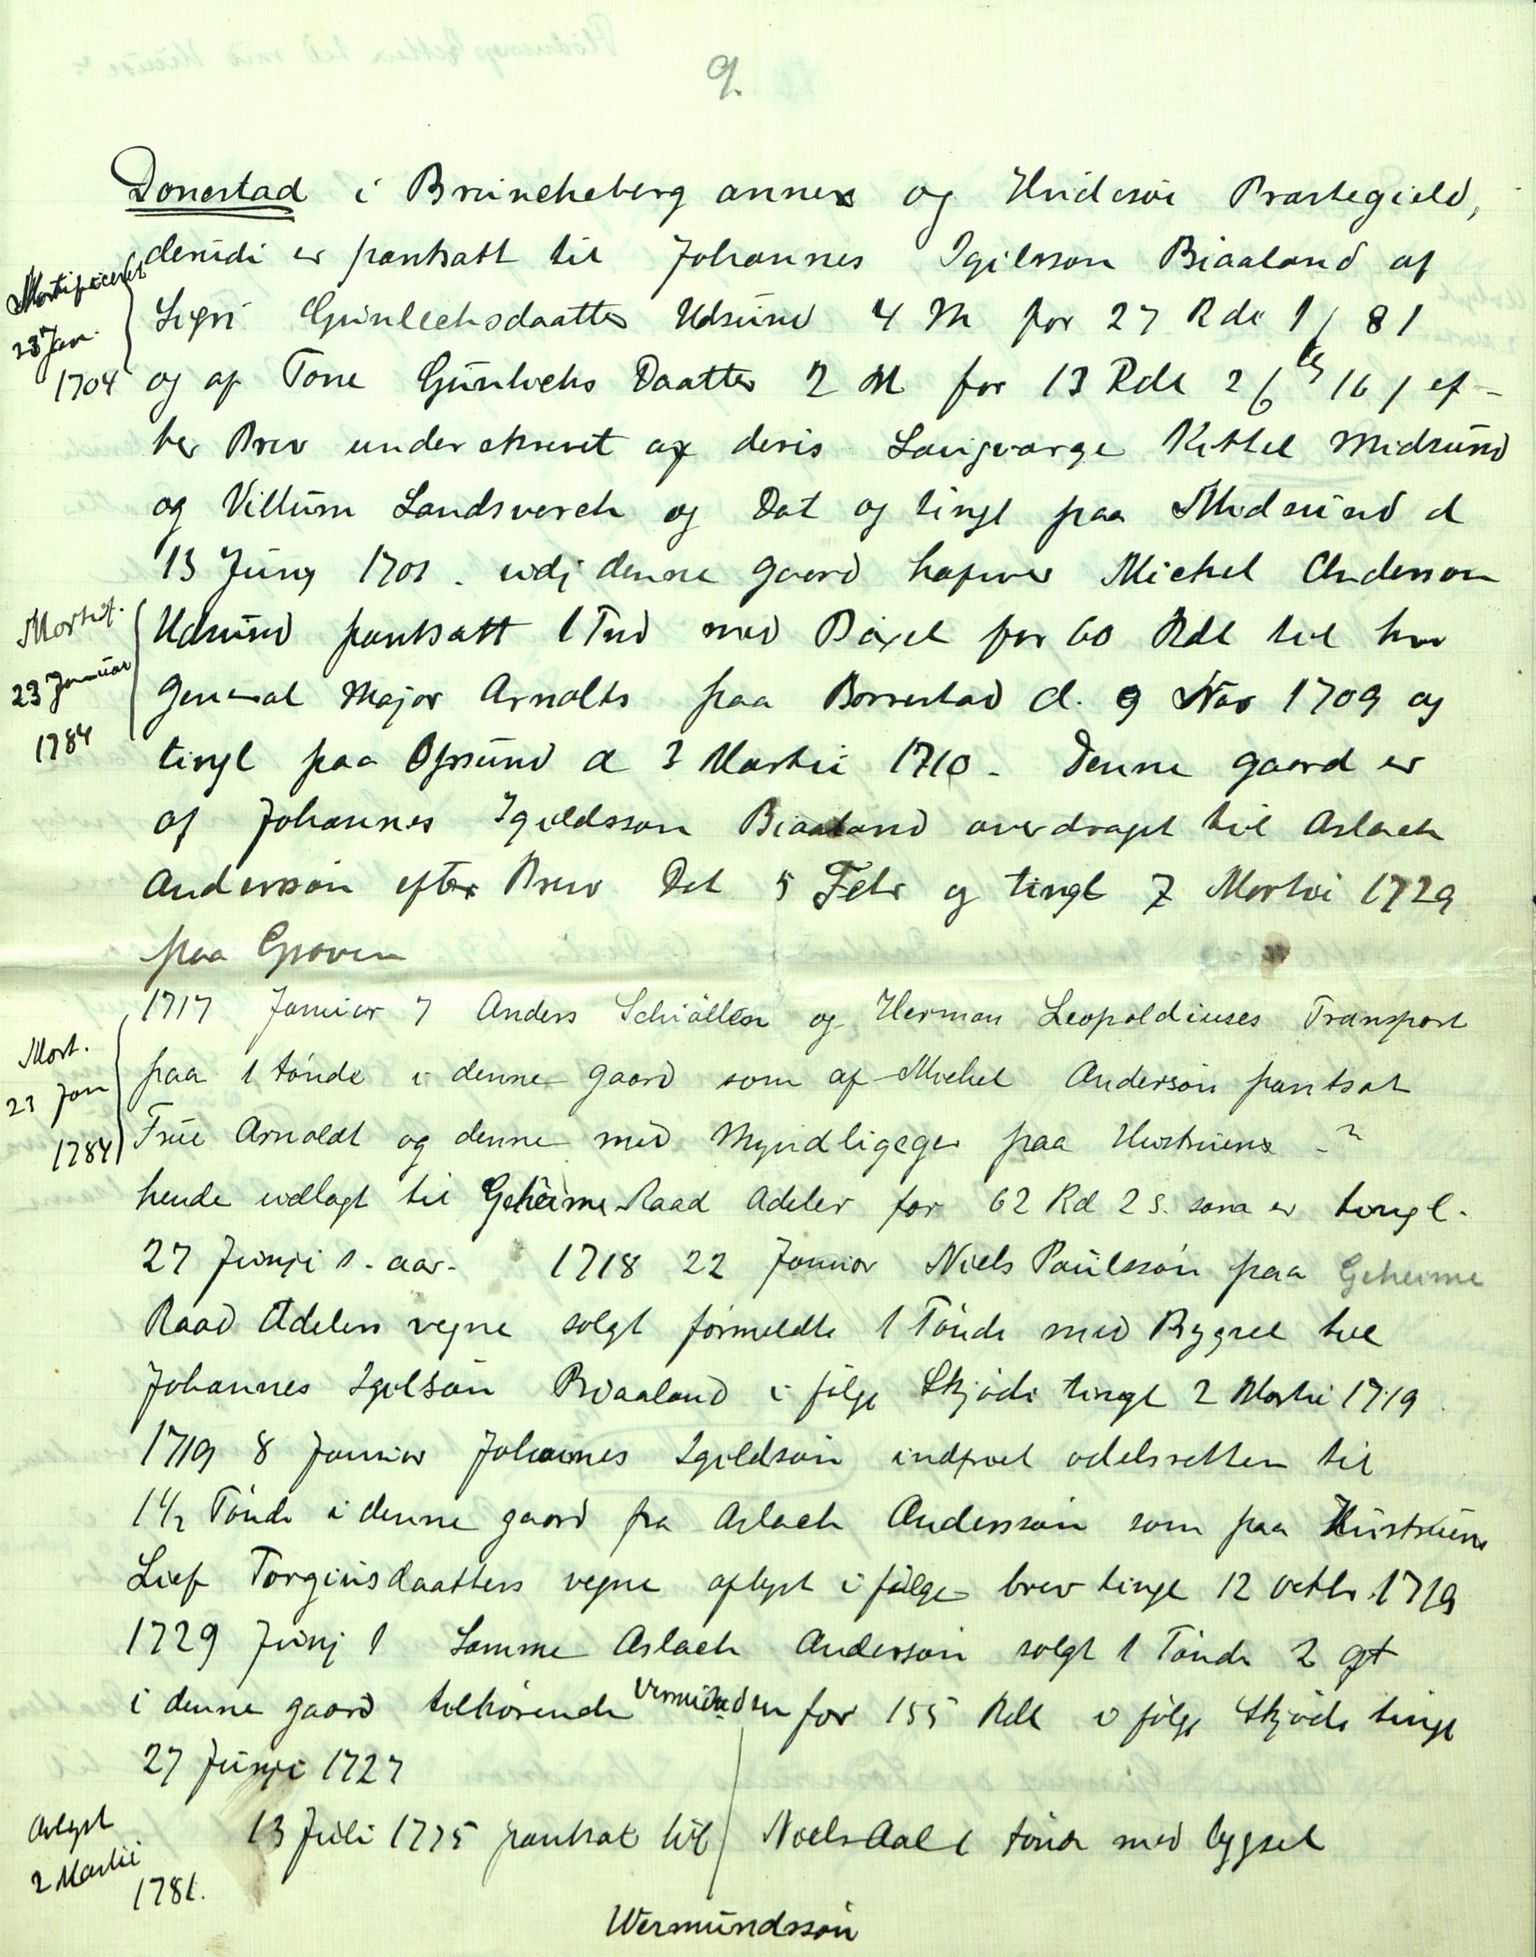 9.
Donestad i Bruncheberg annex og Hvidesøi Præstegield,
derudi er pantsatt til Johannes Igilsson Biaaland af
Mortificeret
23 Jan.
1704
Sigri Gunlechsdaatter Udsund 4 M for 27 Rdl 1 / 8 /
og af Tone Gunlechs Daatter 2 M for 13 Rdl 2 / 16 / ef-
ter Brev underskrevet af deris Laugvarge Kittel Midsund
og Villum Landsverch og Dat og tingl paa Midsund d
13 Juny 1701. udj denne gaard hafuer Michel Anderson
Mortif.
23 Januar
1784
Udsund pantsatt 1 Tnd med Bøxel for 60 Rdl til hr
General Major Arnolts paa Borrestad d. 9 Nov 1709 og
tingl paa Ofsund d 3 Martii 1710. Denne gaard er
af Johannes Igeldsson Biaaland overdraget til Aslach
Anderssøn efter Brev Dat 5 Febr og tingl 7 Martii 1729
paa Groven
1717 Januar 7 Anders Schiøllen og Herman Leopoldiuses Transport
Mort.
23 Jan
1784
paa 1 tønde i denne gaard som af Michel Andersøn pantsat
Frue Arnoldt og denne med Myndligeger paa Hustruens - ?
hende udlagt til Geheime Raad Adeler for 62 Rd 2 s. som er tingl.
27 Junii s. aar. 1718 22 Januar Niels Paulssøn paa Geheime
Raad Adelers vegne solgt formeldte 1 Tønde med Bygsel til
Johannes Igelsøn Biaaland i følge Skjøde tingl 2 Martii 1719
1719 8 Januar Johannes Igeldsøn indfriet odelsretten til
1 1/2 Tønde i denne gaard fra Aslach Anderssøn som paa Hustruens
Lief Torgiusdaatters vegne aflyst i følge brev tingl 12 octbr 1719
1729 Junj 1 Samme Aslach Andersøn solgt 1 Tønde 2 gt
i denne gaard tilhørende Vermundsen for 155 Rdl i følge Skjøde tingl
27 Junii 1727
Aflyst
2 Martii
1781.
13 Juli 1775 pantsat til Niels Aal 1 tønde med bygsel
Wermundssøn